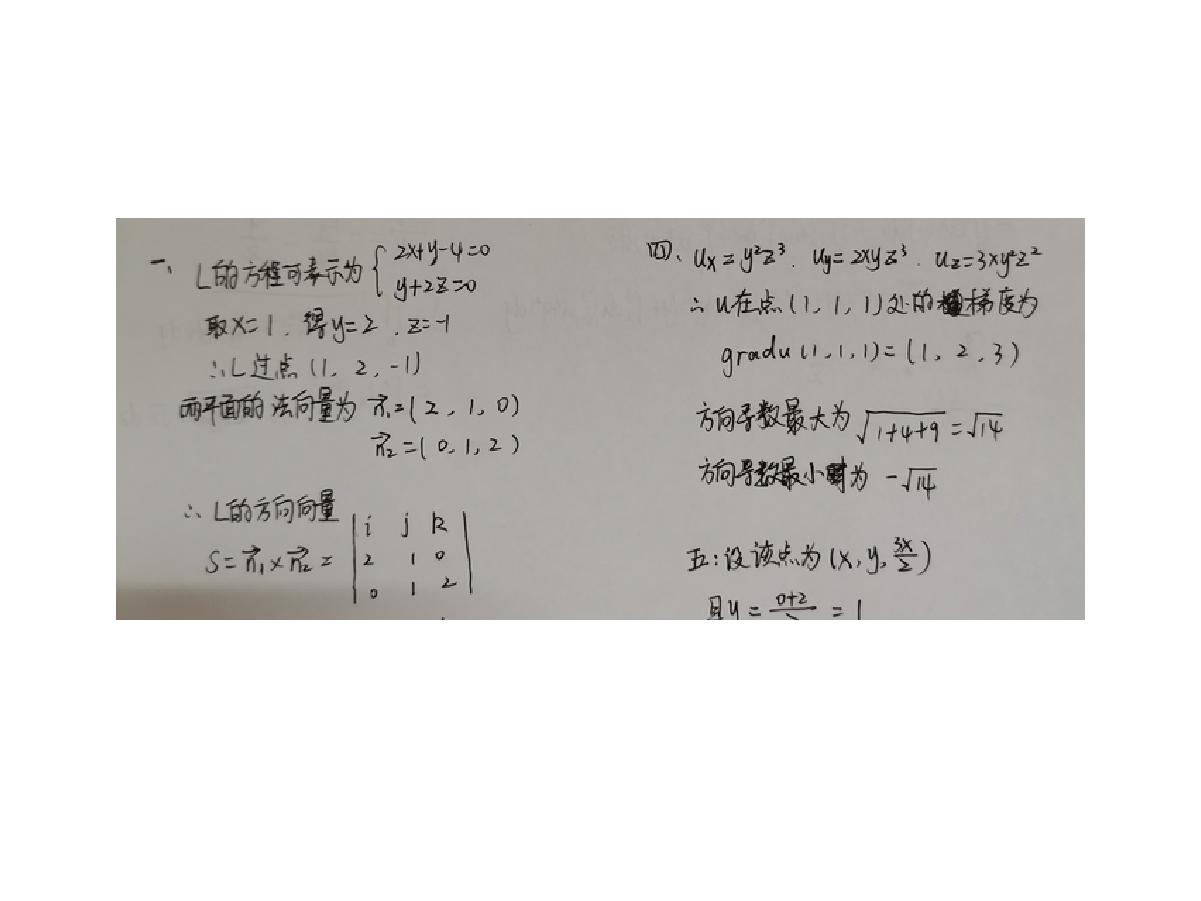 一、L的方程可表示为 { 2x+y-4=0
y+2z=0
取x=1,得y=2,z=-1
∴L过点(1,2,-1)
两平面的法向量为 n₁=(2,1,0)
n₂=(0,1,2)
∴ L的方向向量
S=n₁×n₂= | i j k
2 1 0
0 1 2 |
四、ux=y²z³. uy=2xyz³. uz=3xy²z²
∴u在点(1,1,1)处的梯度为
gradu(1,1,1)=(1,2,3)
方向导数最大为 √1+4+9 = √14
方向导数最小时为 -√14
五:设该点为(x,y,3x/2)
且y= 0+2 =1